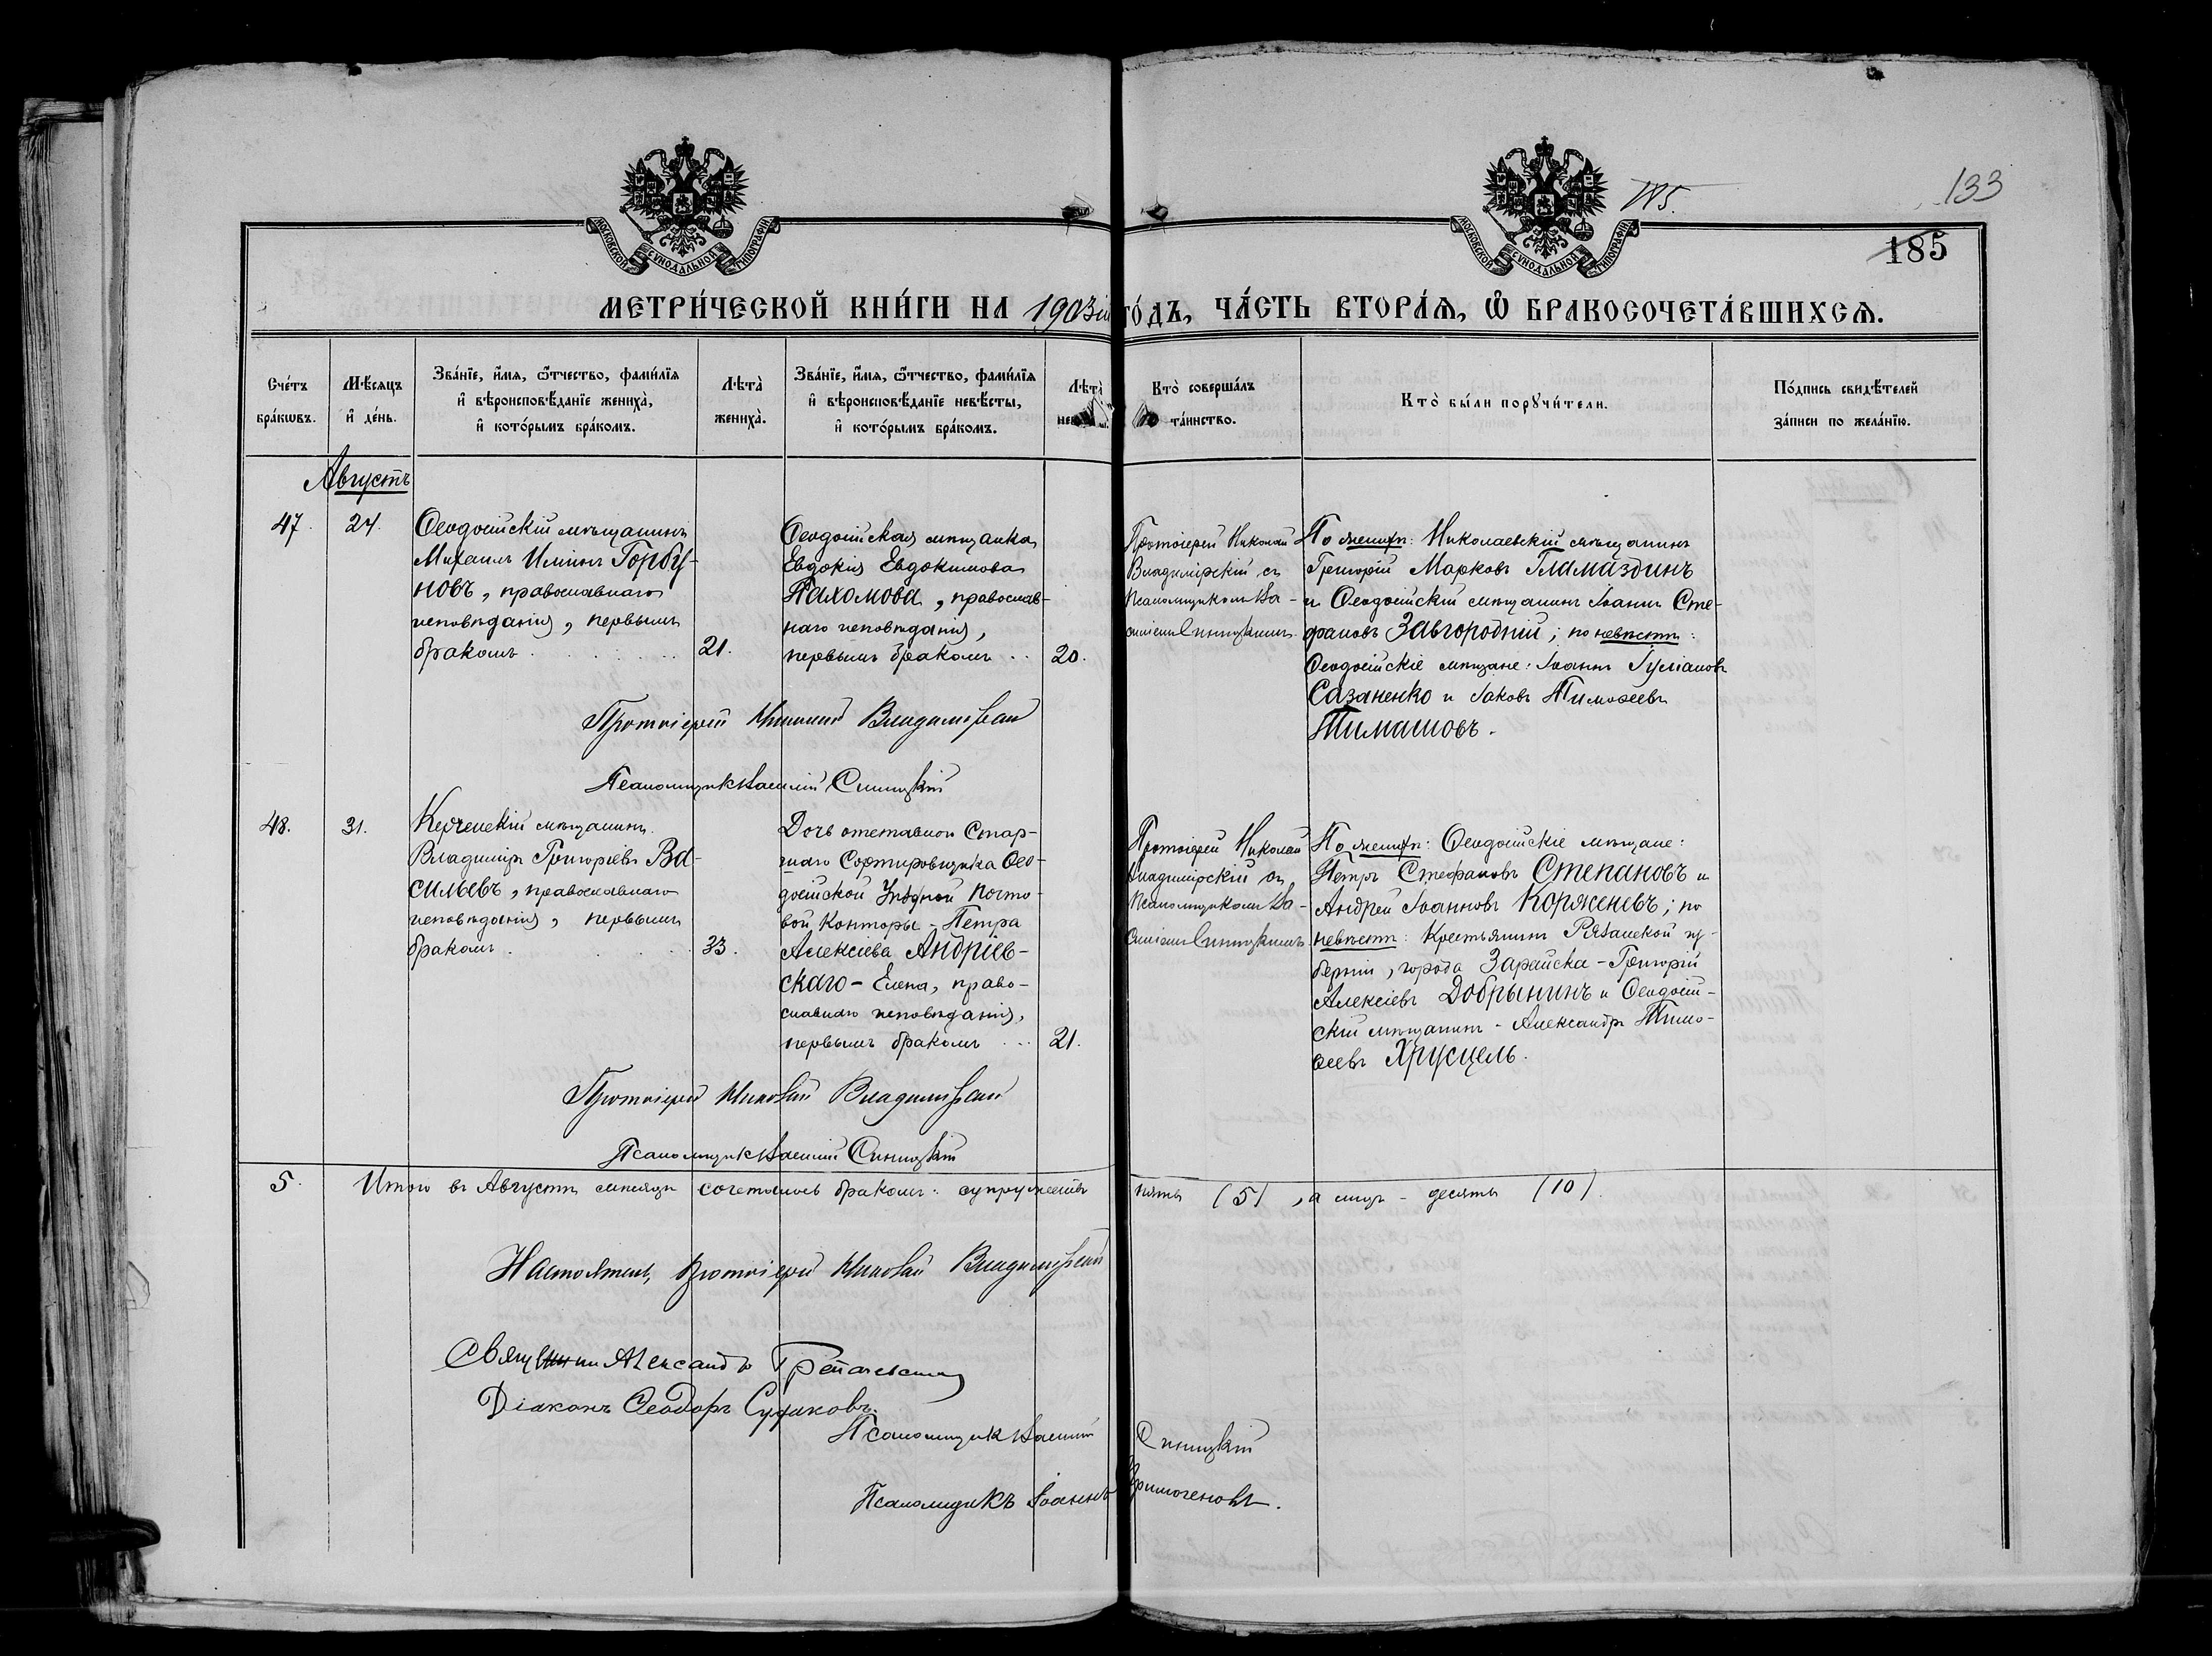 МОСКОВСКОЙ СѴНОДАЛЬНОЙ ТИПОГРАФІИ
МОСКОВСКОЙ СѴНОДАЛЬНОЙ ТИПОГРАФІИ
133
185
МЕТРИ́ЧЕСКОЙ КНИ́ГИ НА 1903й ГО́ДЪ, ЧА́СТЬ ВТОРА́Я, Ѡ БРАКОСОЧЕТА́ВШИХСЯ.
Сче́тъ бра́кωвъ.
Мѣ́сяцъ и҆ де́нь.
Зва́нїе, и҆́мя, ѻ҆́тчество, фами́лїя и҆ вѣроисповѣ́данїе жениха̀, и҆ кото́рымъ бра́комъ.
Лѣта̀ жениха̀.
Зва́нїе, и҆́мя, ѻ҆́тчество, фами́лїя и҆ вѣроисповѣ́данїе невѣ́сты, и҆ кото́рымъ бра́комъ.
Лѣта̀
Кто̀ соверша́лъ та́инство.
Кто̀ бы́ли порꙋчи́тели.
По́дпись свидѣ́телей за́писи по жела́нїю.
Августъ
47.
24.
Ѳеодосійскій мѣщанинъ
Михаилъ Ильинъ Горбу-
новъ, православнаго
исповѣданія, первымъ
бракомъ
21.
Ѳеодосійская мѣщанка
Евдокія Евдокимова
Пахомова, православ-
наго исповѣданія,
первымъ бракомъ
20.
Протоіерей Николай
Владимірскій съ
псаломщикомъ Ва-
силіемъ Синицкимъ.
По женихѣ: Николаевскій мѣщанинъ
Григорій Марковъ Гламаздинъ
и Ѳеодосійскій мѣщанинъ Іоаннъ Сте-
фановъ Завгородній; по невѣстѣ:
Ѳеодосійскіе мѣщане: Іоаннъ Іуліановъ
Сазаненко и Іаковъ Тимоѳеевъ
Тимашовъ.
Протоіерей Николай Владимірскій
Псаломщикъ Василій Синицкій
48.
31.
Керченскій мѣщанинъ
Владиміръ Григоріевъ Ва-
сильевъ, православнаго
исповѣданія, первымъ
бракомъ
33.
Дочь отставного Стар-
шаго Сортировщика Ѳео-
досійской Уѣздной Почто-
вой Конторы - Петра
Алексіева Андріев-
скаго - Елена, право-
славнаго исповѣданія,
первымъ бракомъ
21.
Протоіерей Николай
Владимірскій съ
псаломщикомъ Ва-
силіемъ Синицкимъ
По женихѣ: Ѳеодосійскіе мѣщане:
Петръ Стефановъ Степановъ и
Андрей Іоанновъ Корженевъ; по
невѣстѣ: Крестьянинъ Рязанской гу-
берніи, города Зарайска - Григорій
Алексіевъ Добрынинъ и Ѳеодосій-
скій мѣщанинъ - Александръ Тимо-
ѳеевъ Хрусцель.
Протоіерей Николай Владимірскій
Псаломщикъ Василій Синицкій
5. Итого въ Августѣ мѣсяцѣ сочеталось бракомъ: супружествъ пять (5), а лицъ - десять (10).
Настоятель, Протоіерей Николай Владимірскій
Діаконъ Ѳеодоръ Судаковъ.
Псаломщикъ Василій Синицкій
Псаломщикъ Іоаннъ